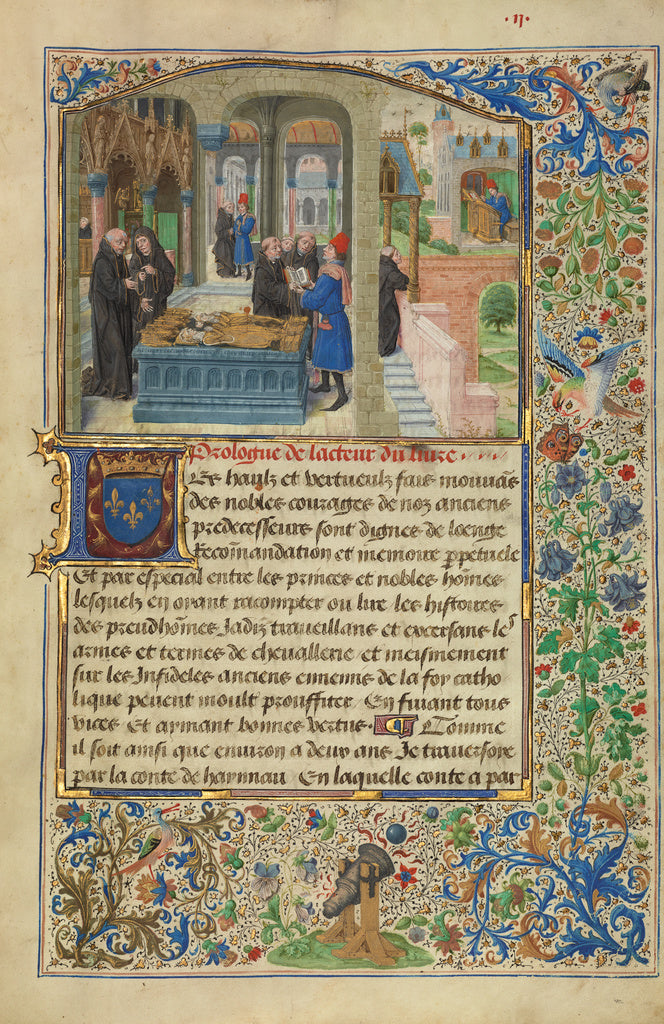 ·II·
Prologue de lacteur du liure
Les haulz et vertueulz fais mouuãs
des nobles courages de noz anciens
predecesseurs sont dignes de loenge
Recõmandation et memoire ꝑpetuele
Et par especial entre les princes et nobles hõmes
lesquelz en oyant racompter ou lire les histoires
des preudhõmes Jadiz traueillans et excersans les
armes et termes de cheuallerie et meismement
sur les Infideles anciens ennemis de la foy catho
lique peuent moult prouffiter En fuiant tous
vices Et aymant bonnes vertus. Comme
il soit ainsi que enuiron a deux ans Je trauersoie
par la conte de haynnau En laquelle conte a par